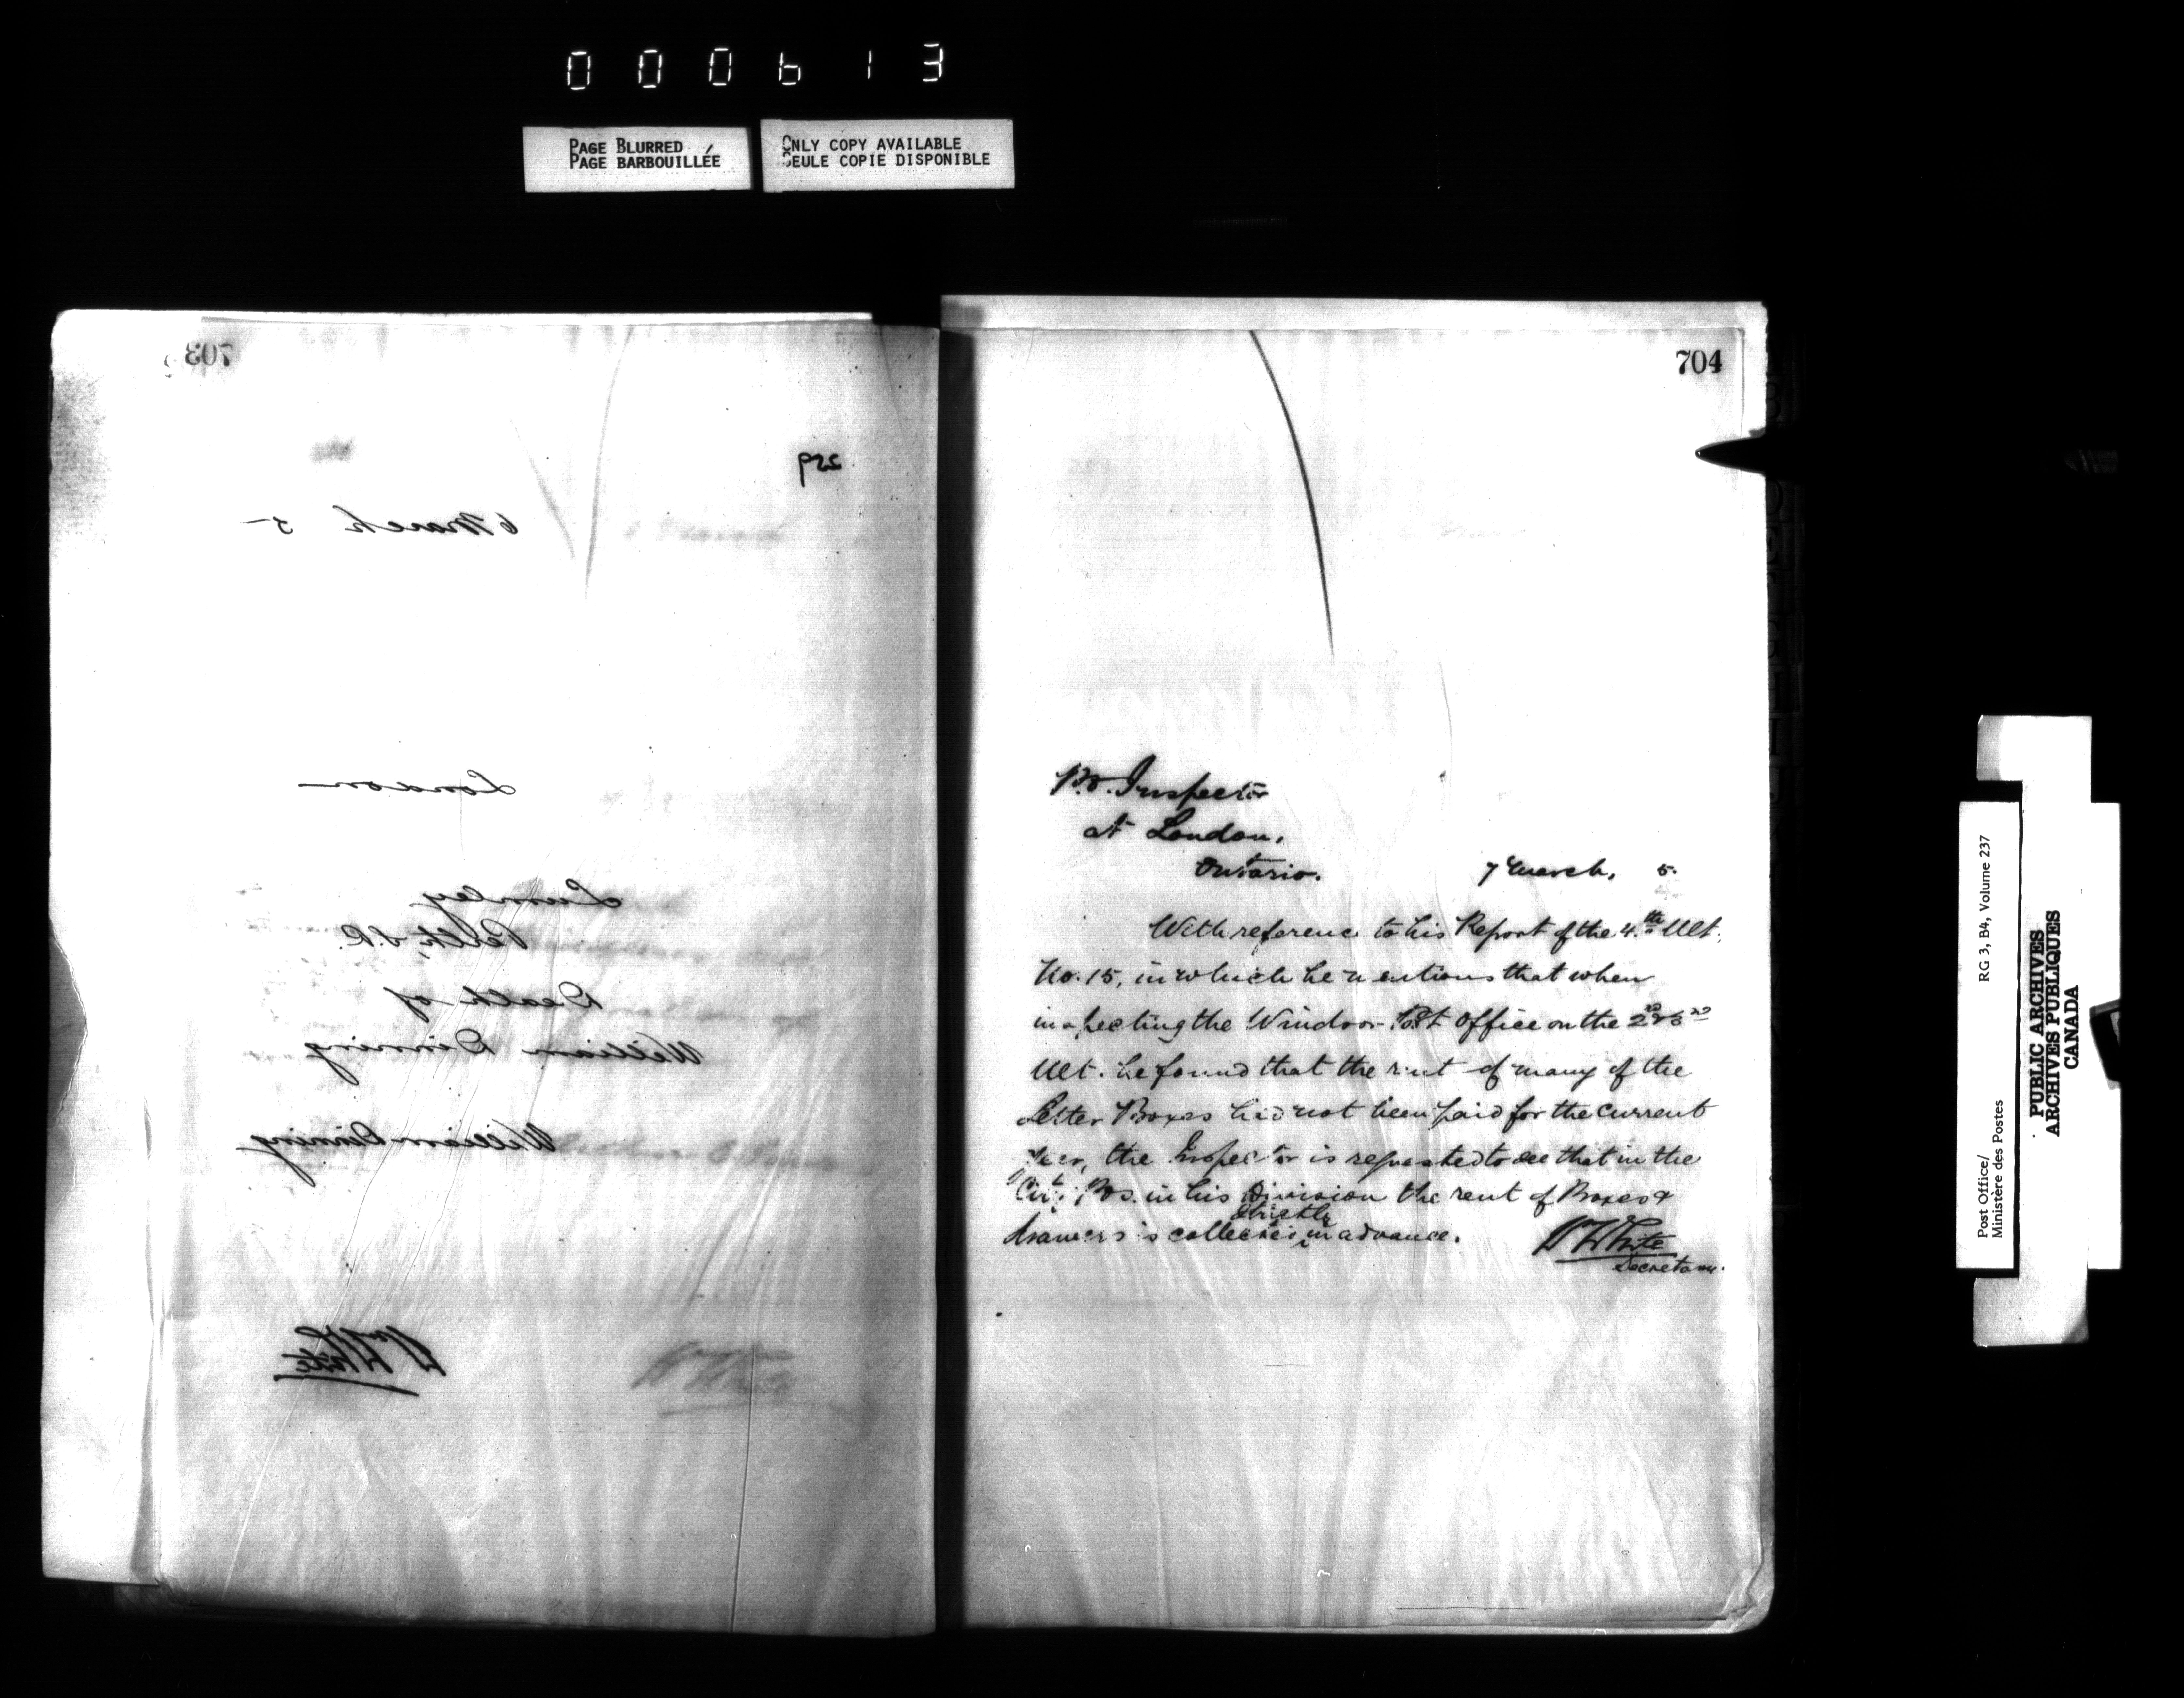 000613
PAGE BLURRED
PAGE BARBOUILLÉE
ONLY COPY AVAILABLE
SEULE COPIE DISPONIBLE
703
259
6 March 5
London
Lumley
Perth, S.R.
Death of
William Dinning
William Dinning
W White
704
P.O. Inspector
at London,
Ontario.
7 March, 5.
With reference to his Report of the 4th Ult.
No. 15, in which he mentions that when
inspecting the Windsor Post Office on the
Ult. he found that the rent of many of the
Letter Boxes had not been paid for the current
year, the Inspector is requested to see that in the
City POs. in his Division the rent of Boxes &
drawers is collected strictly in advance.
W White
Secretary.
Post Office/ RG 3, B4, Volume 237
Ministère des Postes
PUBLIC ARCHIVES
ARCHIVES PUBLIQUES
CANADA